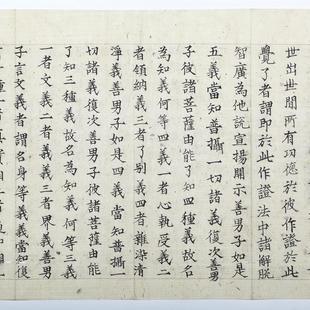 世出世間所有功德於彼作證於此
覺了者謂即於此作證法中諸解脫
智廣為他說宣揚開示善男子如是
五義當知普攝一切諸義復次善男
子彼諸菩薩由能了知四種義故名
為知義何等四義一者心執受義二
者領納義三者了別義四者雜染清
淨義善男子如是四義當知普攝一
切諸義復次善男子彼諸菩薩由能
了知三種義故名為知義何等三義
一者文義二者義義三者界義善男
子言文義者謂名身等義義當知復